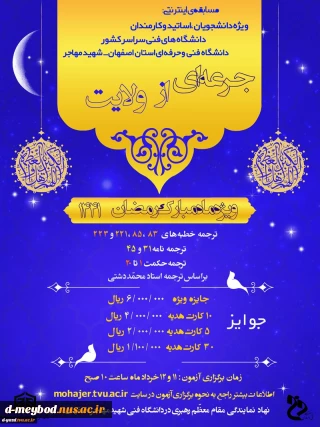 مسابقه‌ی اینترنتی:
ویژه دانشجویان، اساتید و کارمندان
دانشگاه های فنی سراسر کشور
دانشگاه فنی و حرفه‌ای استان اصفهان - شهید مهاجر
جرعه‌ای از ولایت
ویژه ماه مبارک رمضان ۱۴۴۱
ترجمه خطبه‌های ۸۳، ۸۵، ۲۲۱ و ۲۲۳
ترجمه نامه ۳۱ و ۴۵
ترجمه حکمت ۱ تا ۲۰
بر اساس ترجمه استاد محمد دشتی
جوایز
جایزه ویژه ۶/۰۰۰/۰۰۰ ریال
۱۰ کارت هدیه ۴/۰۰۰/۰۰۰ ریال
۵ کارت هدیه ۲/۰۰۰/۰۰۰ ریال
۳۰ کارت هدیه ۱/۱۰۰/۰۰۰ ریال
زمان برگزاری آزمون: ۱۱ و ۱۲ خرداد ماه ساعت ۱۰ صبح
اطلاعات بیشتر راجع به نحوه برگزاری آزمون در سایت mohajer.tvu.ac.ir
نهاد نمایندگی مقام معظم رهبری در دانشگاه فنی شهید
d-meybod.nus.ac.ir